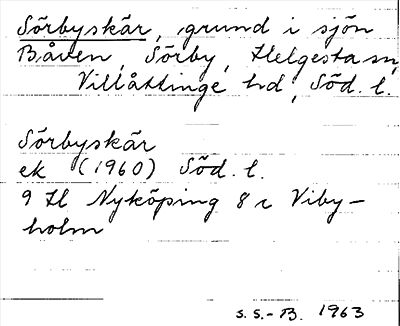 Sörbyskär, grund i sjön
Båven, Sörby, Helgesta sn,
Villåttinge hd, Söd. l.
Sörbyskär
ek (1960) Söd. l.
9 H Nyköping 8 c Viby-
holm
S. S.-B. 1963